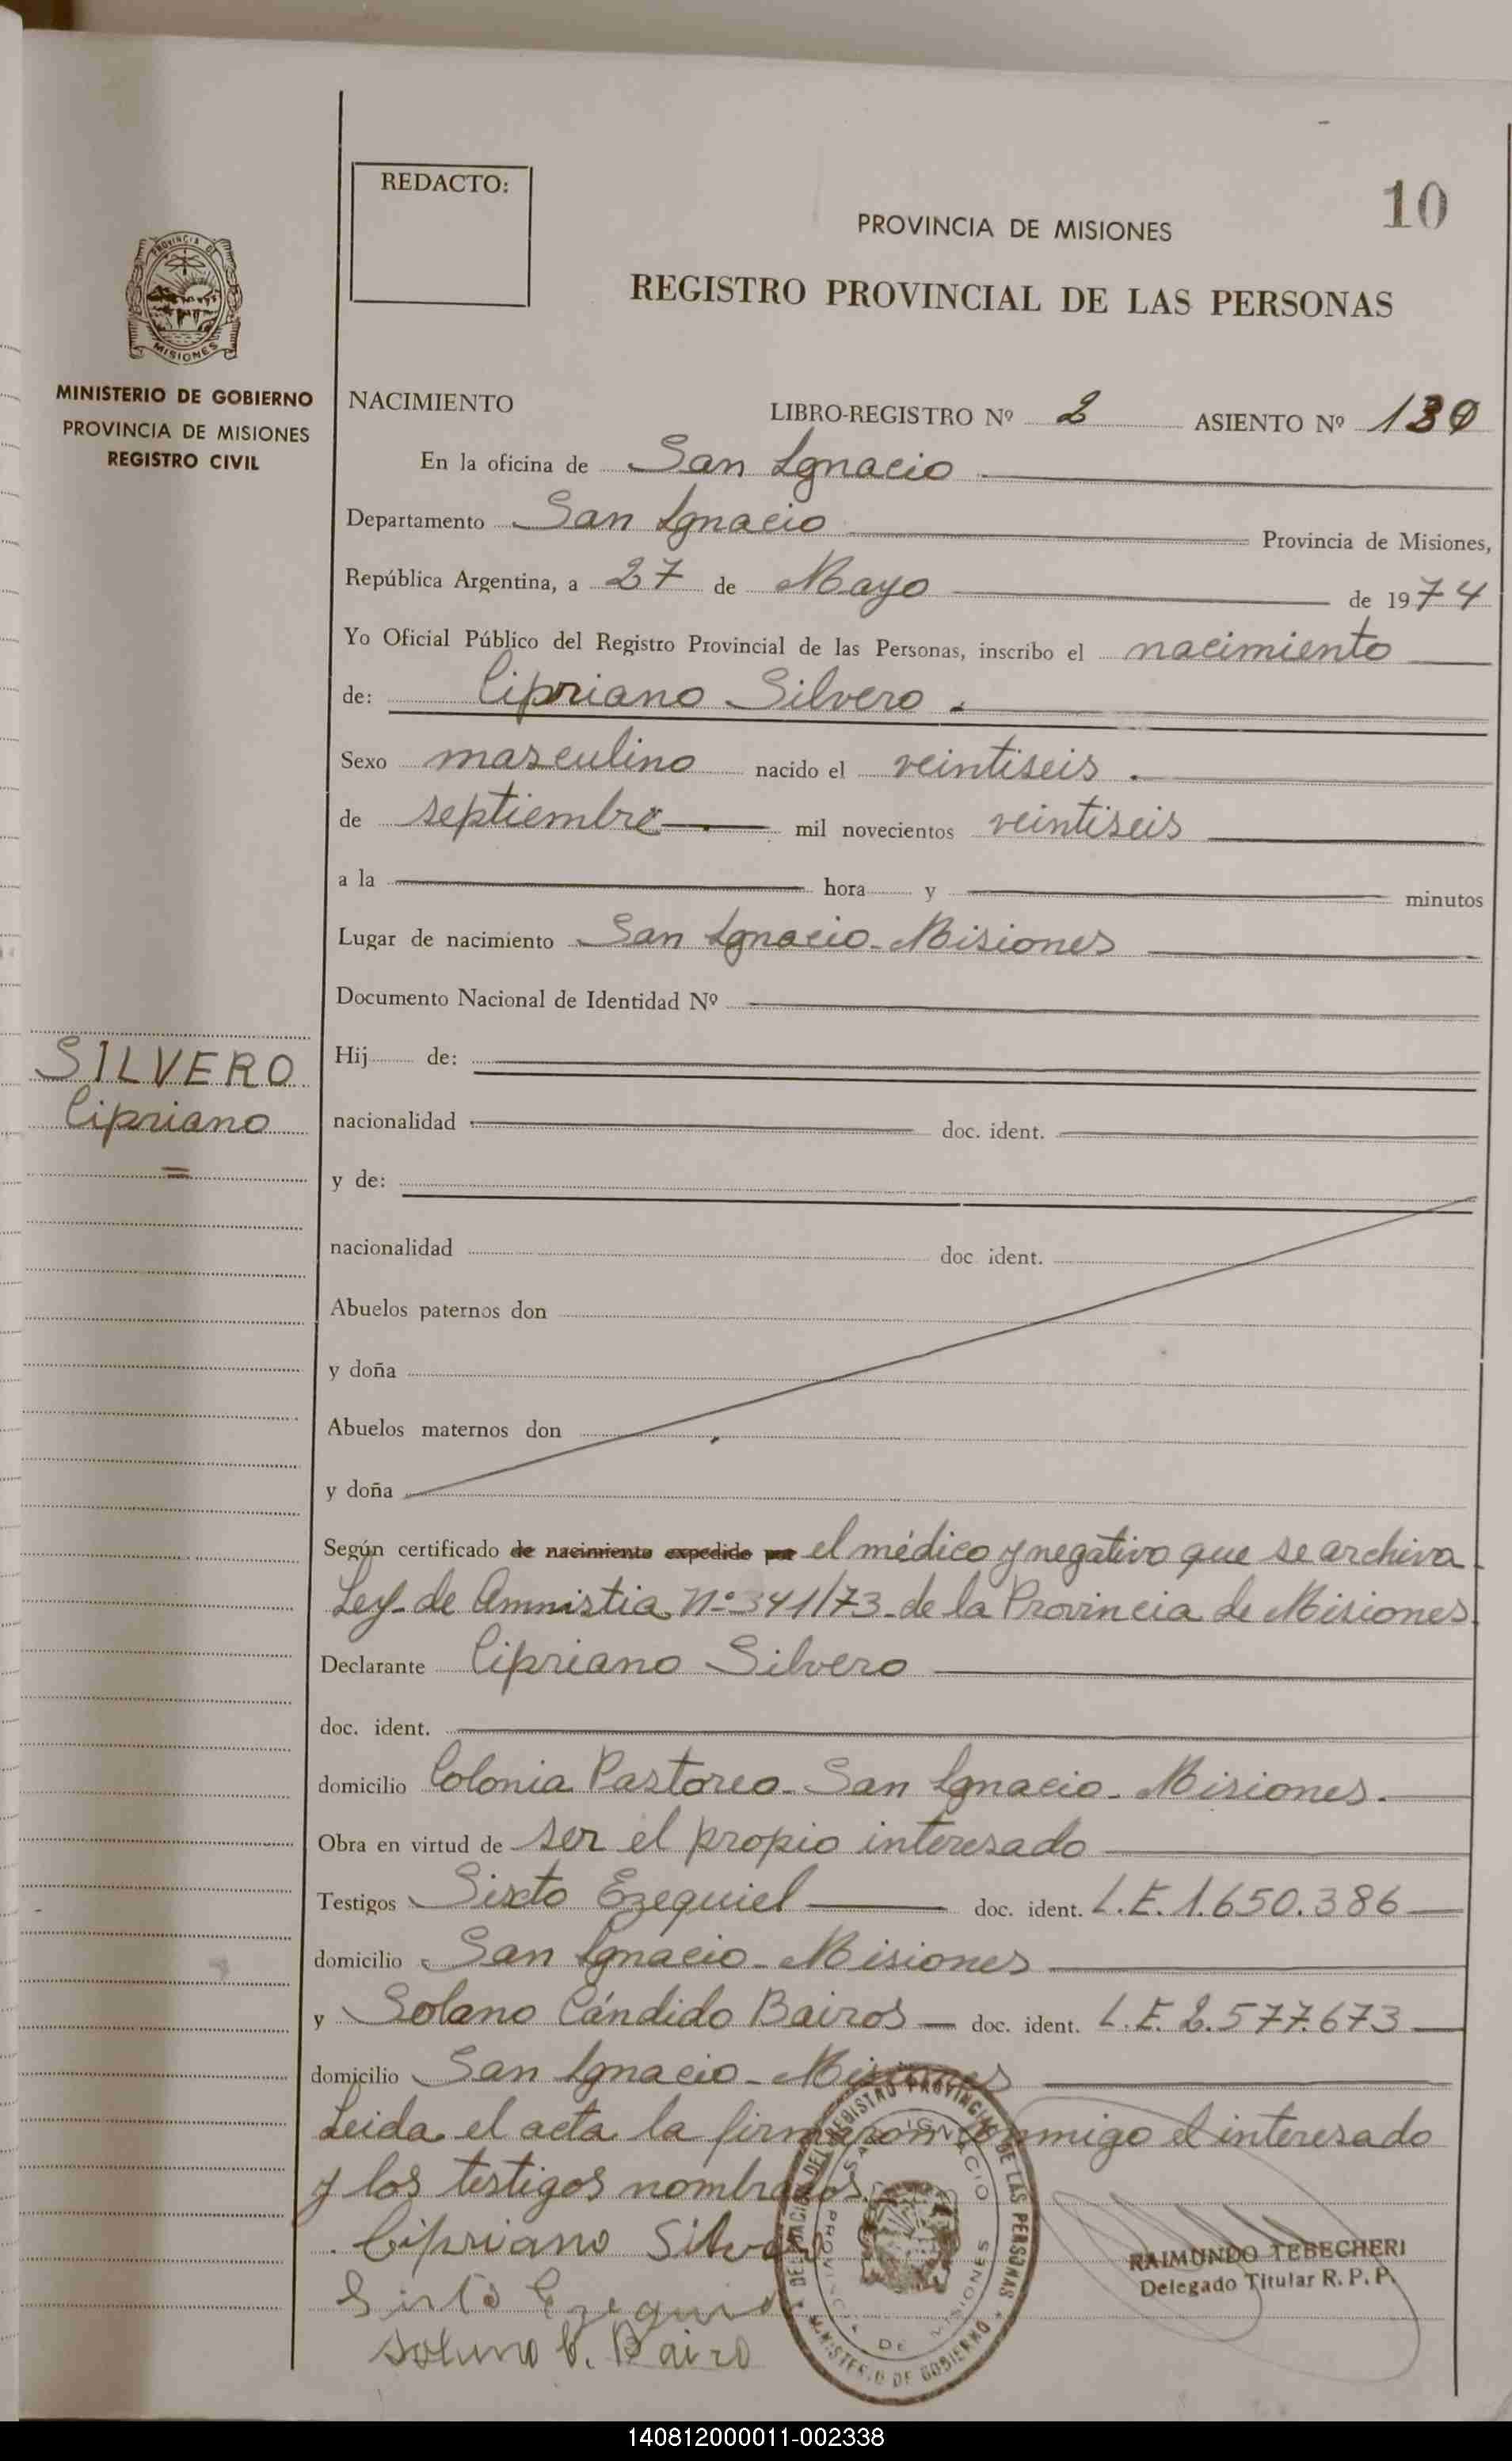 REDACTO:
10
PROVINCIA DE MISIONES
REGISTRO PROVINCIAL DE LAS PERSONAS
PROVINCIA DE
MISIONES
MINISTERIO DE GOBIERNO
PROVINCIA DE MISIONES
REGISTRO CIVIL
SILVERO
Cipriano
=
NACIMIENTO LIBRO-REGISTRO Nº 2 ASIENTO Nº
En la oficina de San Ignacio
Departamento San Ignacio Provincia de Misiones,
República Argentina, a 27 de Mayo de 1974
Yo Oficial Público del Registro Provincial de las Personas, inscribo el nacimiento
de: Cipriano Silvero.
Sexo masculino nacido el veintiseis.
de septiembre mil novecientos veintiseis
a la hora y minutos
Lugar de nacimiento San Ignacio-Misiones
Documento Nacional de Identidad Nº
Hij de:
nacionalidad doc. ident.
y de:
nacionalidad doc. ident.
Abuelos paternos don
y doña
Abuelos maternos don
y doña
Según certificado de nacimiento expedido por el médico y negativo que se archiva.
Ley-de Amnistia, Nº 341/73-de la Provincia de Misiones.
Declarante Cipriano Silvero
doc. ident.
domicilio Colonia Pastoreo-San Ignacio-Misiones.
Obra en virtud de ser el propio interesado
Testigos Sixto Ezequiel doc. ident. L.E. 1.650.386
domicilio San Ignacio-Misiones
y Solano Cándido Bairos doc. ident. L.E. 2.577.673
domicilio San Ignacio-Misiones
Leida el acta la firmaron conmigo el interesado
y los testigos nombrados.
Cipriano Silvero
Sixto Ezequiel
Solano C. Bairo
DELEGACION DEL REGISTRO PROVINCIAL DE LAS PERSONAS
SAN IGNACIO
PROVINCIA DE MISIONES
MINISTERIO DE GOBIERNO
RAIMUNDO TEBECHERI
Delegado Titular R. P. P.
140812000011-002338